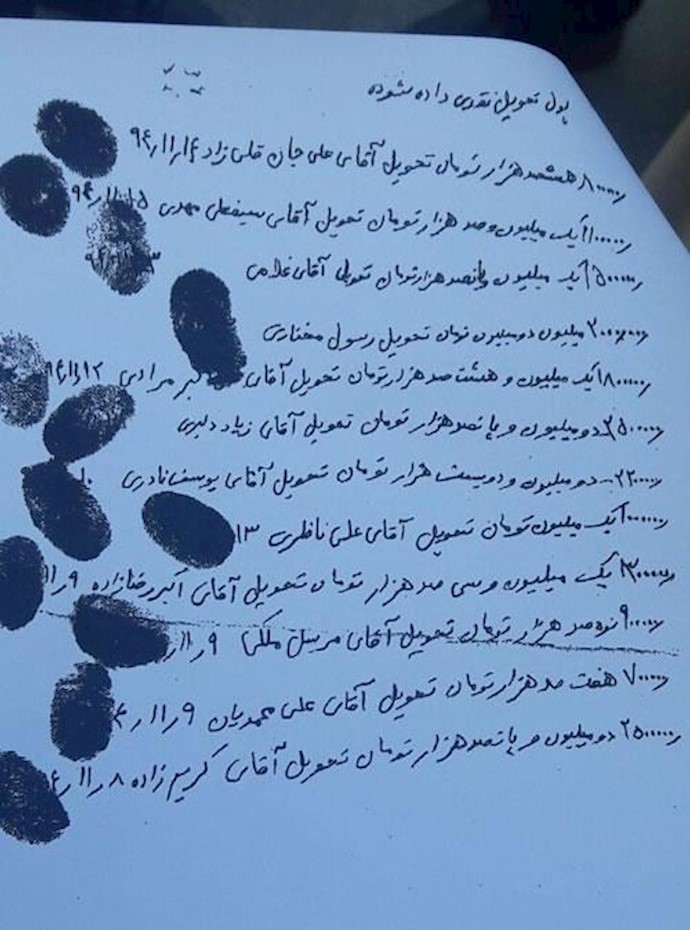 پول تحویل نقدی داده شوده
۸۰۰۰۰۰ هشصد هزار تومان تحویل آقای علی جان قلی زاد ۹۴/۱۱/۱۴
۱۱۰۰۰۰۰ یک میلیون و صد هزار تومان تحویل آقای سیفعلی مهدی ۹۴/۱۱/۱۵
۱۵۰۰۰۰۰ یک میلیون و پانصد هزار تومان تحویل آقای غلامی
۲۰۰۰۰۰۰ میلیون دو میلیون تومان تحویل رسول مختاری
۱۸۰۰۰۰۰ یک میلیون و هشت صد هزار تومان تحویل آقای مرادی ۹۴/۱۱/۱۲
۲۵۰۰۰۰۰ دو میلیون و پانصد هزار تومان تحویل آقای زیاد دلیری
۲۲۰۰۰۰۰ دو میلیون و دویست هزار تومان تحویل آقای یوسف نادری ۱۰
۱۰۰۰۰۰۰ یک میلیون تومان تحویل آقای علی ناظری ۱۳
۱۳۰۰۰۰۰ یک میلیون و سی صد هزار تومان تحویل آقای اکبر رضازاده ۹/۱۱
۹۰۰۰۰۰ نوه صد هزار تومان تحویل آقای مرسل ملکی ۹/۱۱/
۷۰۰۰۰۰ هفت صد هزار تومان تحویل آقای علی محمدیان ۹/۱۱/۴
۲۵۰۰۰۰۰ دو میلیون و پانصد هزار تومان تحویل آقای کریم زاده ۸/۱۱/۴